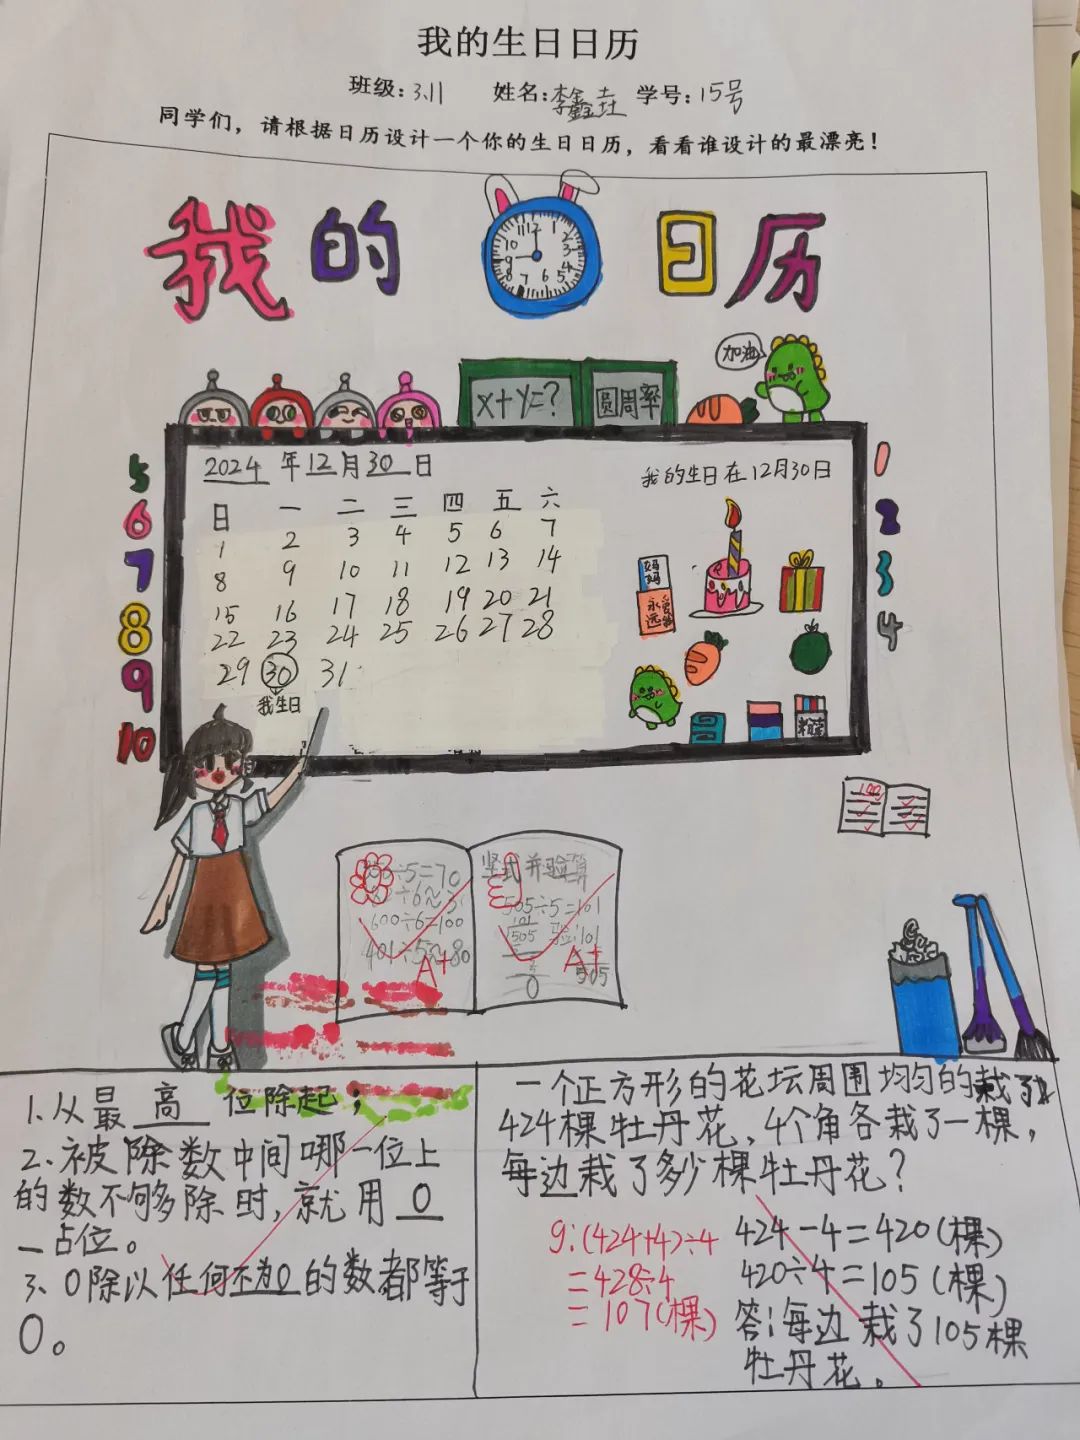 我的生日日历
班级:3.11 姓名:李鑫垚 学号:15号
同学们，请根据日历设计一个你的生日日历，看看谁设计的最漂亮！
我的 日历
11 12 1
10 2
9 3
8 4
7 6 5
加油
x+y=? 圆周率
2024年12月30日
我的生日在12月30日
日 一 二 三 四 五 六
1 2 3 4 5 6 7
8 9 10 11 12 13 14
15 16 17 18 19 20 21
22 23 24 25 26 27 28
29 30 31
我生日
5
6
7
8
9
10
1
2
3
4
妈妈
永远
100
÷5=70
÷6≈
600÷6=100
401÷5≈80
A+
竖式并验算
505÷5=101
101
505 验:101
0
505
A+
1.从最高位除起；
2.被除数中间哪一位上
的数不够除时，就用0
占位。
3.0除以任何不为0的数都等于
0。
一个正方形的花坛周围均匀的栽了
424棵牡丹花，4个角各栽了一棵，
每边栽了多少棵牡丹花？
424-4=420(棵)
420÷4=105(棵)
答:每边栽了105棵
牡丹花。
9:(424+4)÷4
=428÷4
=107(棵)